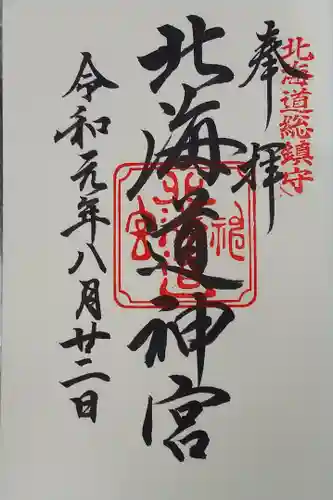 北海道総鎮守
奉拝
北海道神宮
令和元年八月廿二日